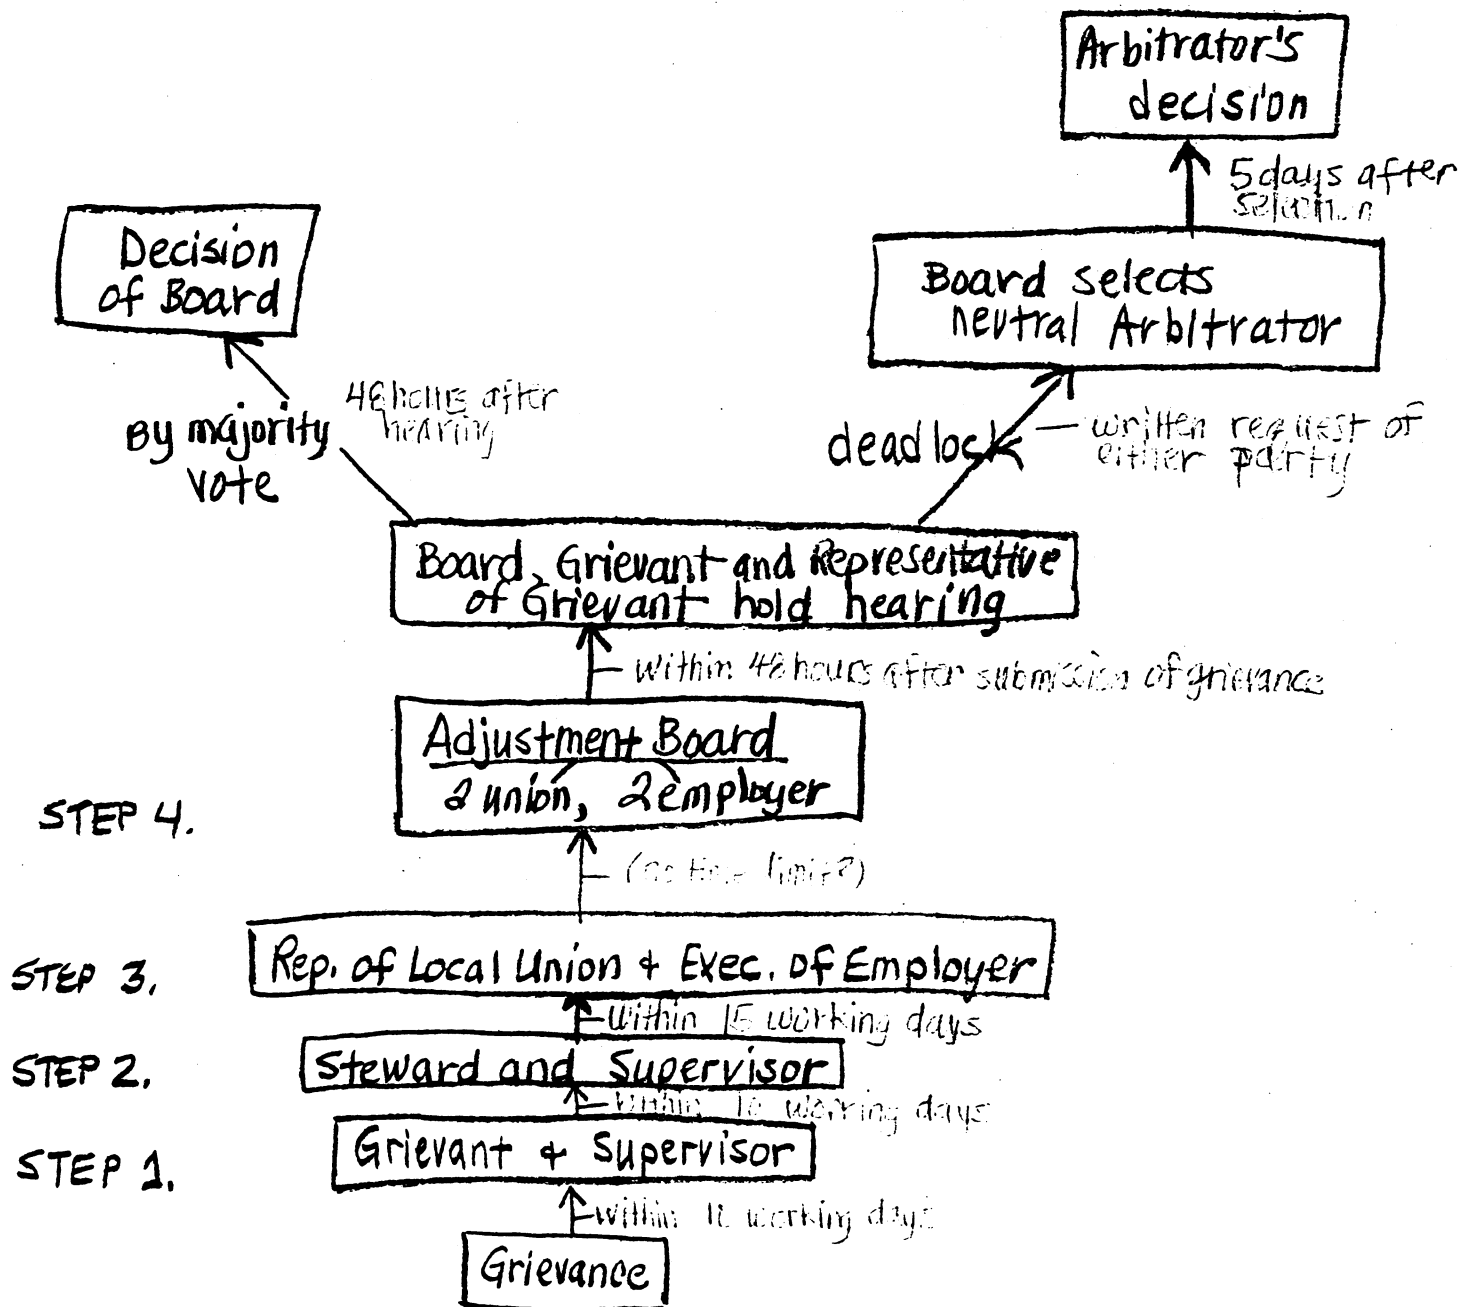 Arbitrator's
decision
5 days after
selection
Decision
of Board
Board selects
neutral Arbitrator
48 hours after
hearing
By majority
vote
deadlock
written request of
either party
Board, Grievant and Representative
of Grievant hold hearing
within 48 hours after submission of grievance
Adjustment Board
2 union, 2 employer
STEP 4.
(no time limit?)
STEP 3.
Rep. of Local Union & Exec. of Employer
within 15 working days
STEP 2.
Steward and Supervisor
within 10 working days
STEP 1.
Grievant & Supervisor
within working days
Grievance